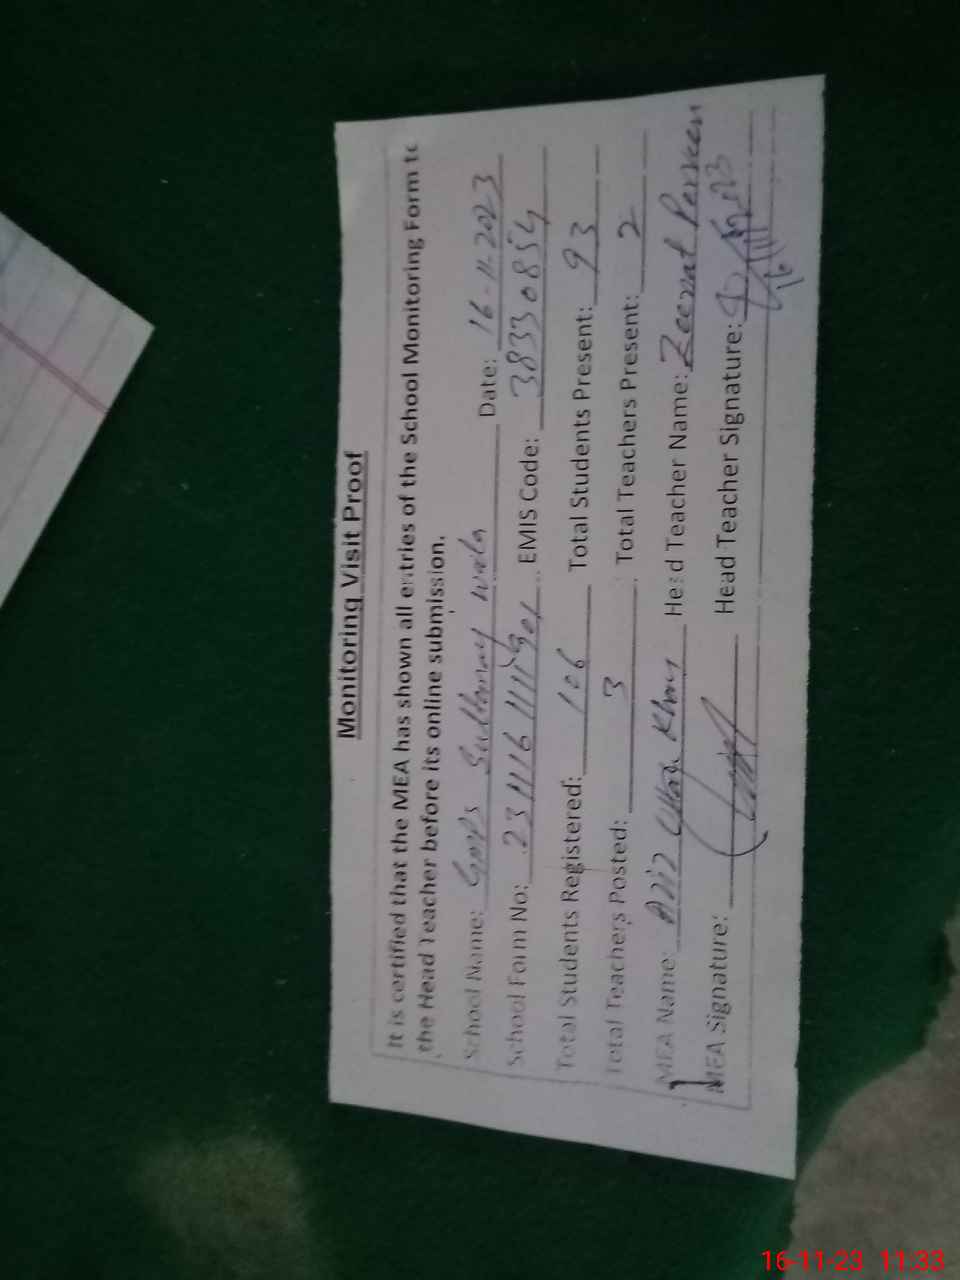 Monitoring Visit Proof
It is certified that the MEA has shown all entries of the School Monitoring Form to
the Head Teacher before its online submission.
School Name: GMPS Sultanay wala Date: 16-11-2023
School Form No: EMIS Code: 38330854
Total Students Registered: 106 Total Students Present: 93
Total Teachers Posted: 3 Total Teachers Present: 2
MEA Name: Aziz Ullah Khan Head Teacher Name: Zeenat Parveen
MEA Signature: Head Teacher Signature:
16-11-23 11:33